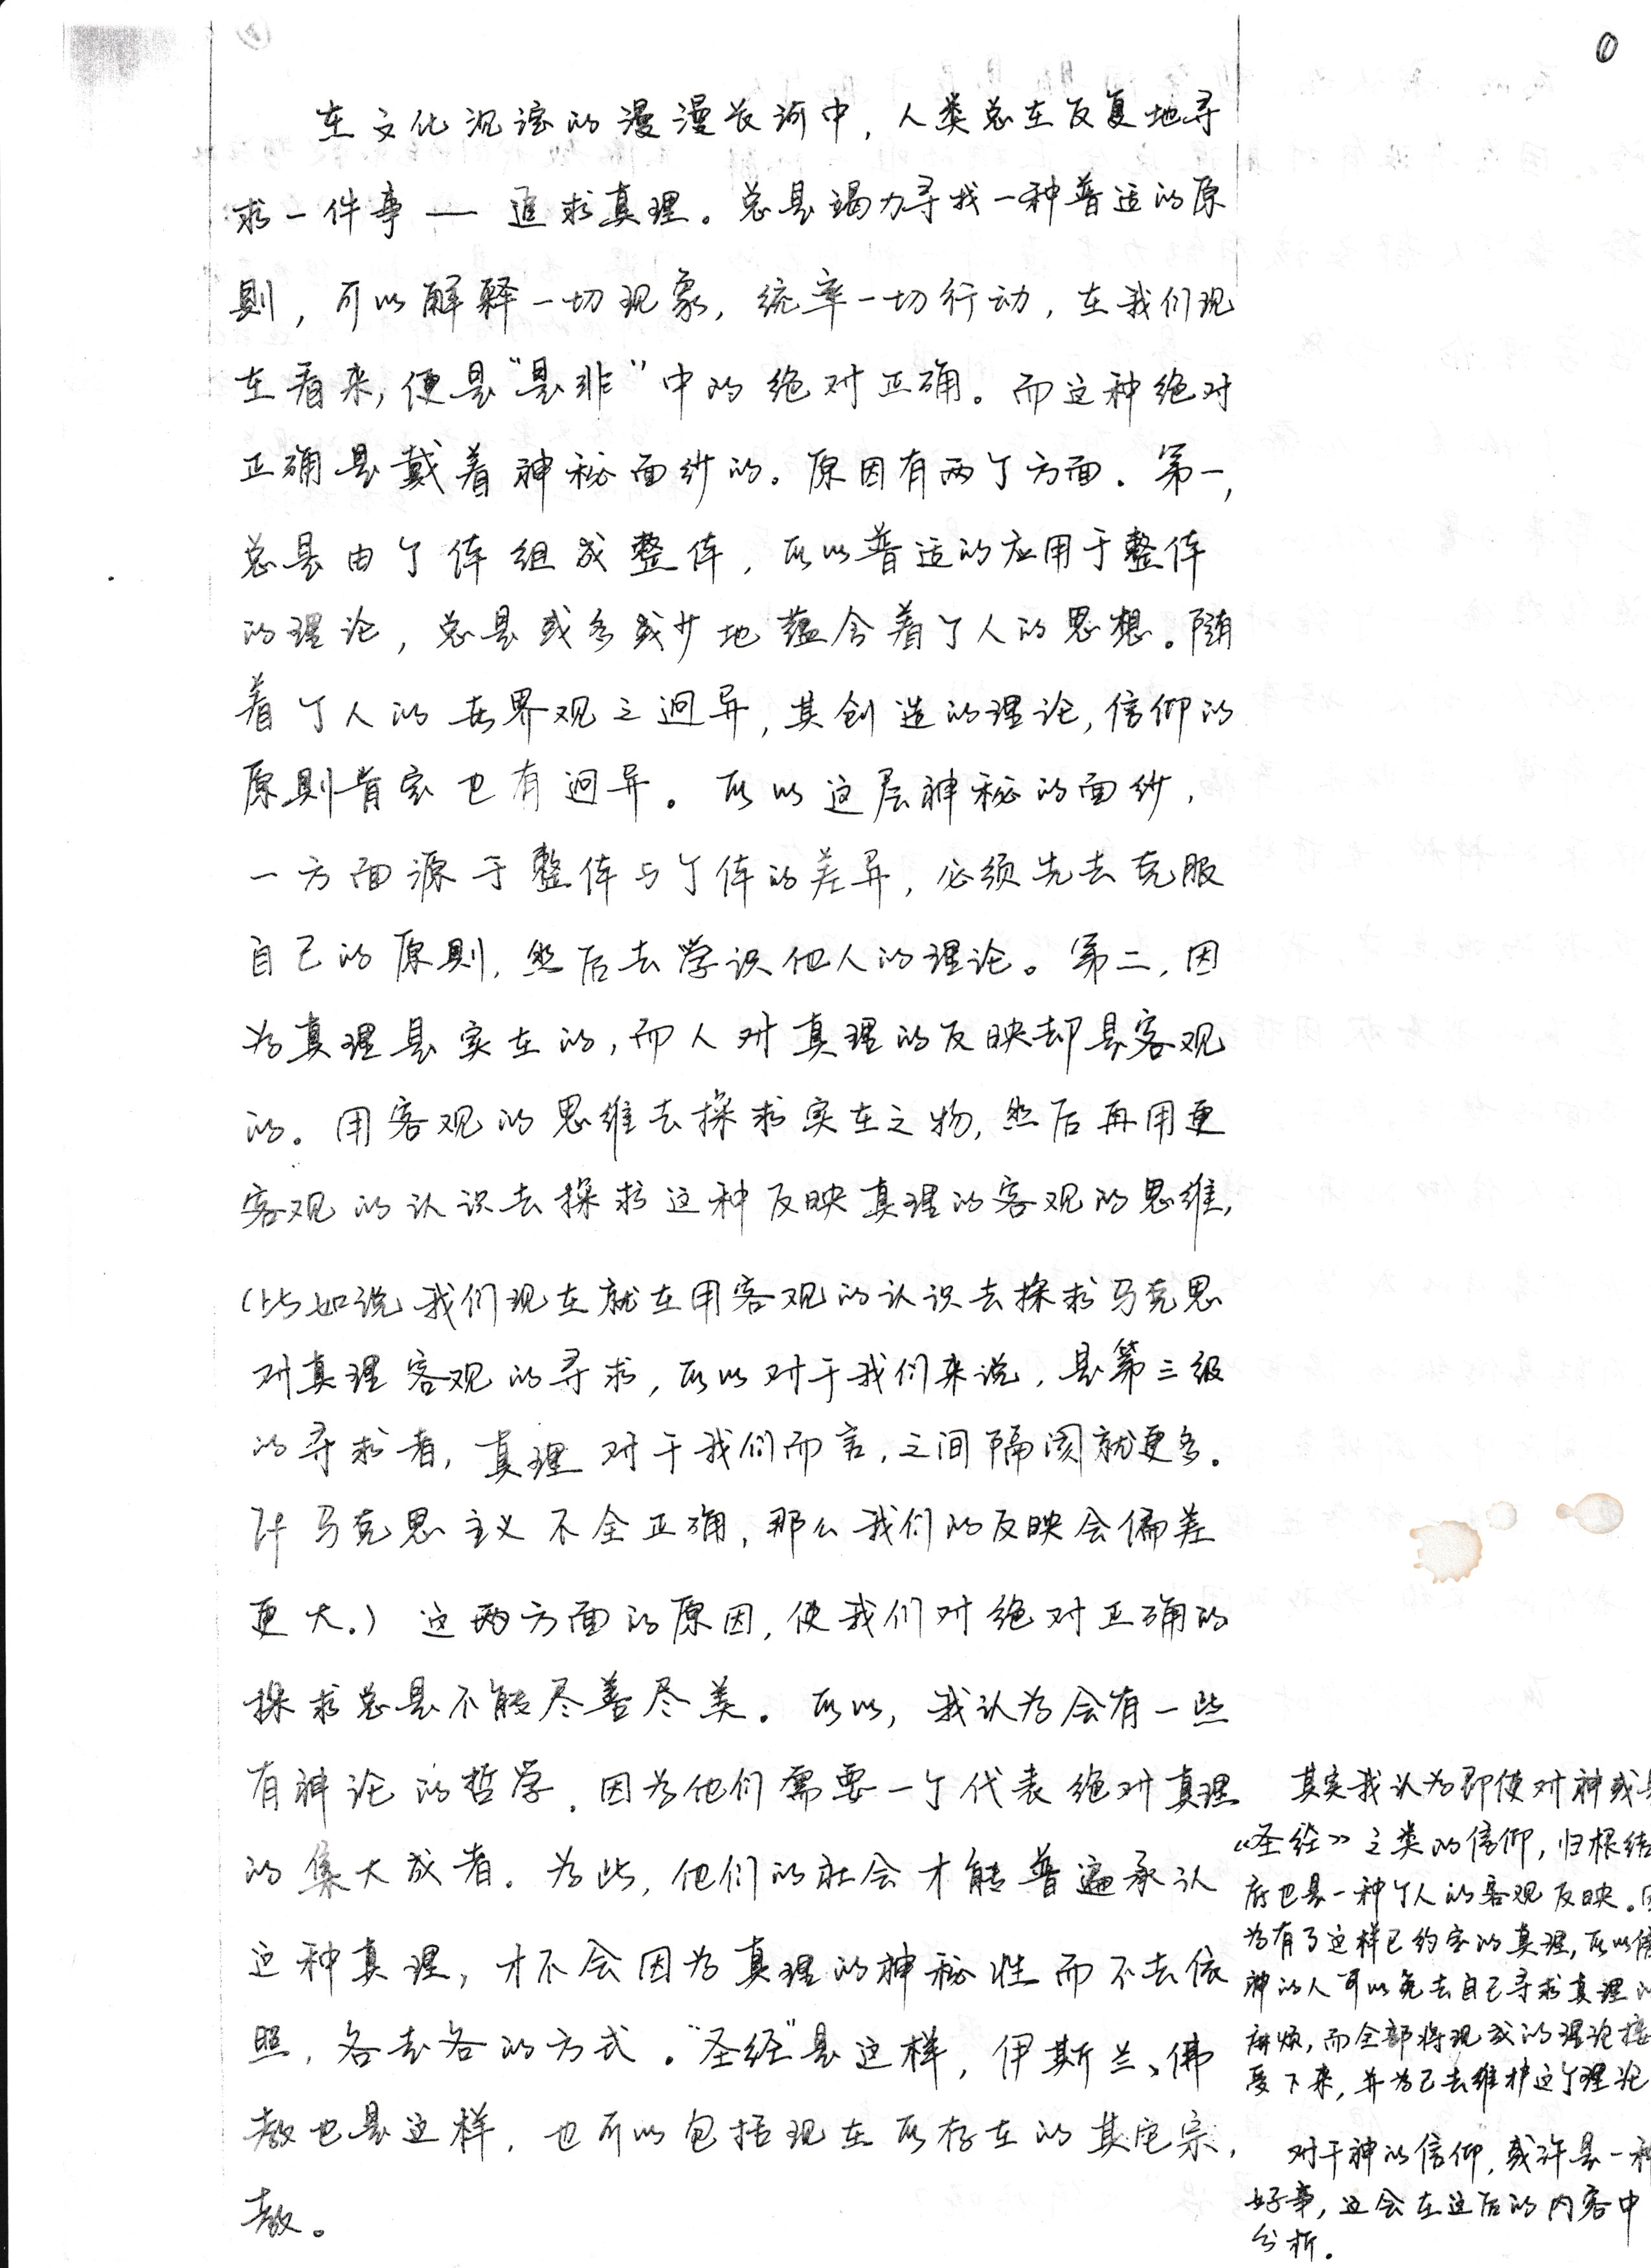 ①
在文化沉淀的漫漫长河中，人类总在反复地寻
求一件事 — 追求真理。总是竭力寻找一种普适的原
则，可以解释一切现象，统率一切行动，在我们现
在看来，便是“是非”中的绝对正确。而这种绝对
正确是戴着神秘面纱的。原因有两个方面．第一，
总是由个体组成整体，所以普适的应用于整体
的理论，总是或多或少地蕴含着个人的思想。随
着个人的世界观之迥异，其创造的理论，信仰的
原则肯定也有迥异。所以这层神秘的面纱，
一方面源于整体与个体的差异，必须先去克服
自己的原则，然后去学识他人的理论。第二，因
为真理是实在的，而人对真理的反映却是客观
的。用客观的思维去探求实在之物，然后再用更
客观的认识去探求这种反映真理的客观的思维，
（比如说我们现在就在用客观的认识去探求马克思
对真理客观的寻求，所以对于我们来说，是第三级
的寻求者，真理对于我们而言，之间隔阂就更多．
马克思主义不全正确，那么我们的反映会偏差
更大．）这两方面的原因，使我们对绝对正确的
探求总是不能尽善尽美．所以，我认为会有一些
有神论的哲学．因为他们需要一个代表绝对真理
的集大成者．为此，他们的社会才能普遍承认
这种真理，才不会因为真理的神秘性而不去依
照，各去各的方式．“圣经”是这样，伊斯兰、佛
教也是这样，也可以包括现在所存在的其它宗
教。
其实我认为即使对神或
《圣经》之类的信仰，归根结
底也是一种个人的客观反映。
为有了这样已约定的真理，所以信
神的人可以免去自己寻求真理的
麻烦，而全部将现成的理论接
受下来，并为己去维护这个理论
对于神的信仰，或许是一种
好事，这会在这后的内容中
分析．